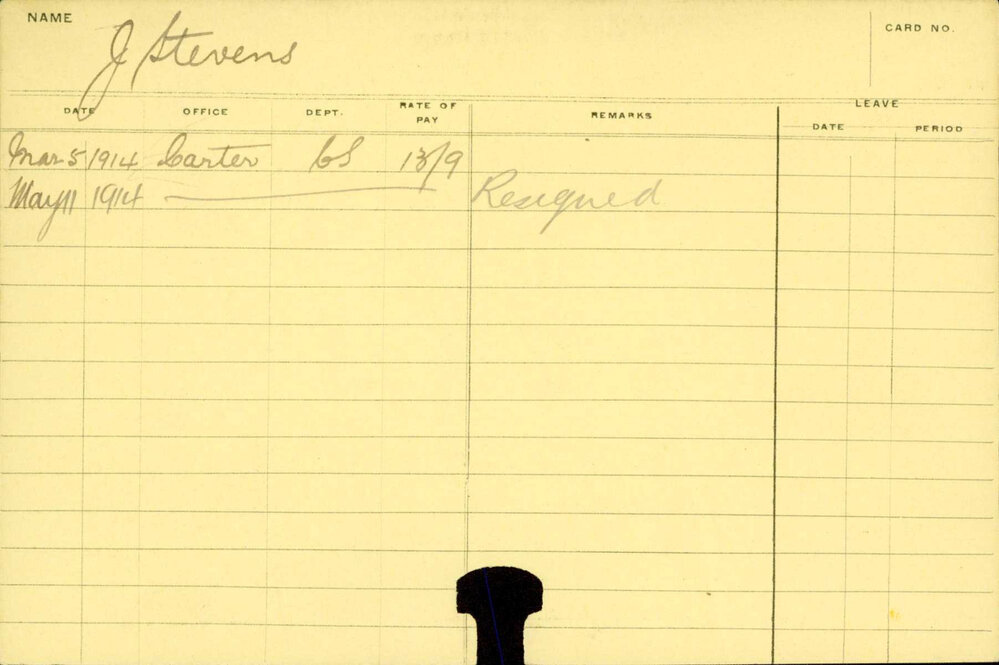 NAME
J Stevens
CARD NO.
DATE OFFICE DEPT. RATE OF PAY REMARKS LEAVE
DATE PERIOD
Mar 5 1914 Carter CS 13/9
May 11 1914 Resigned